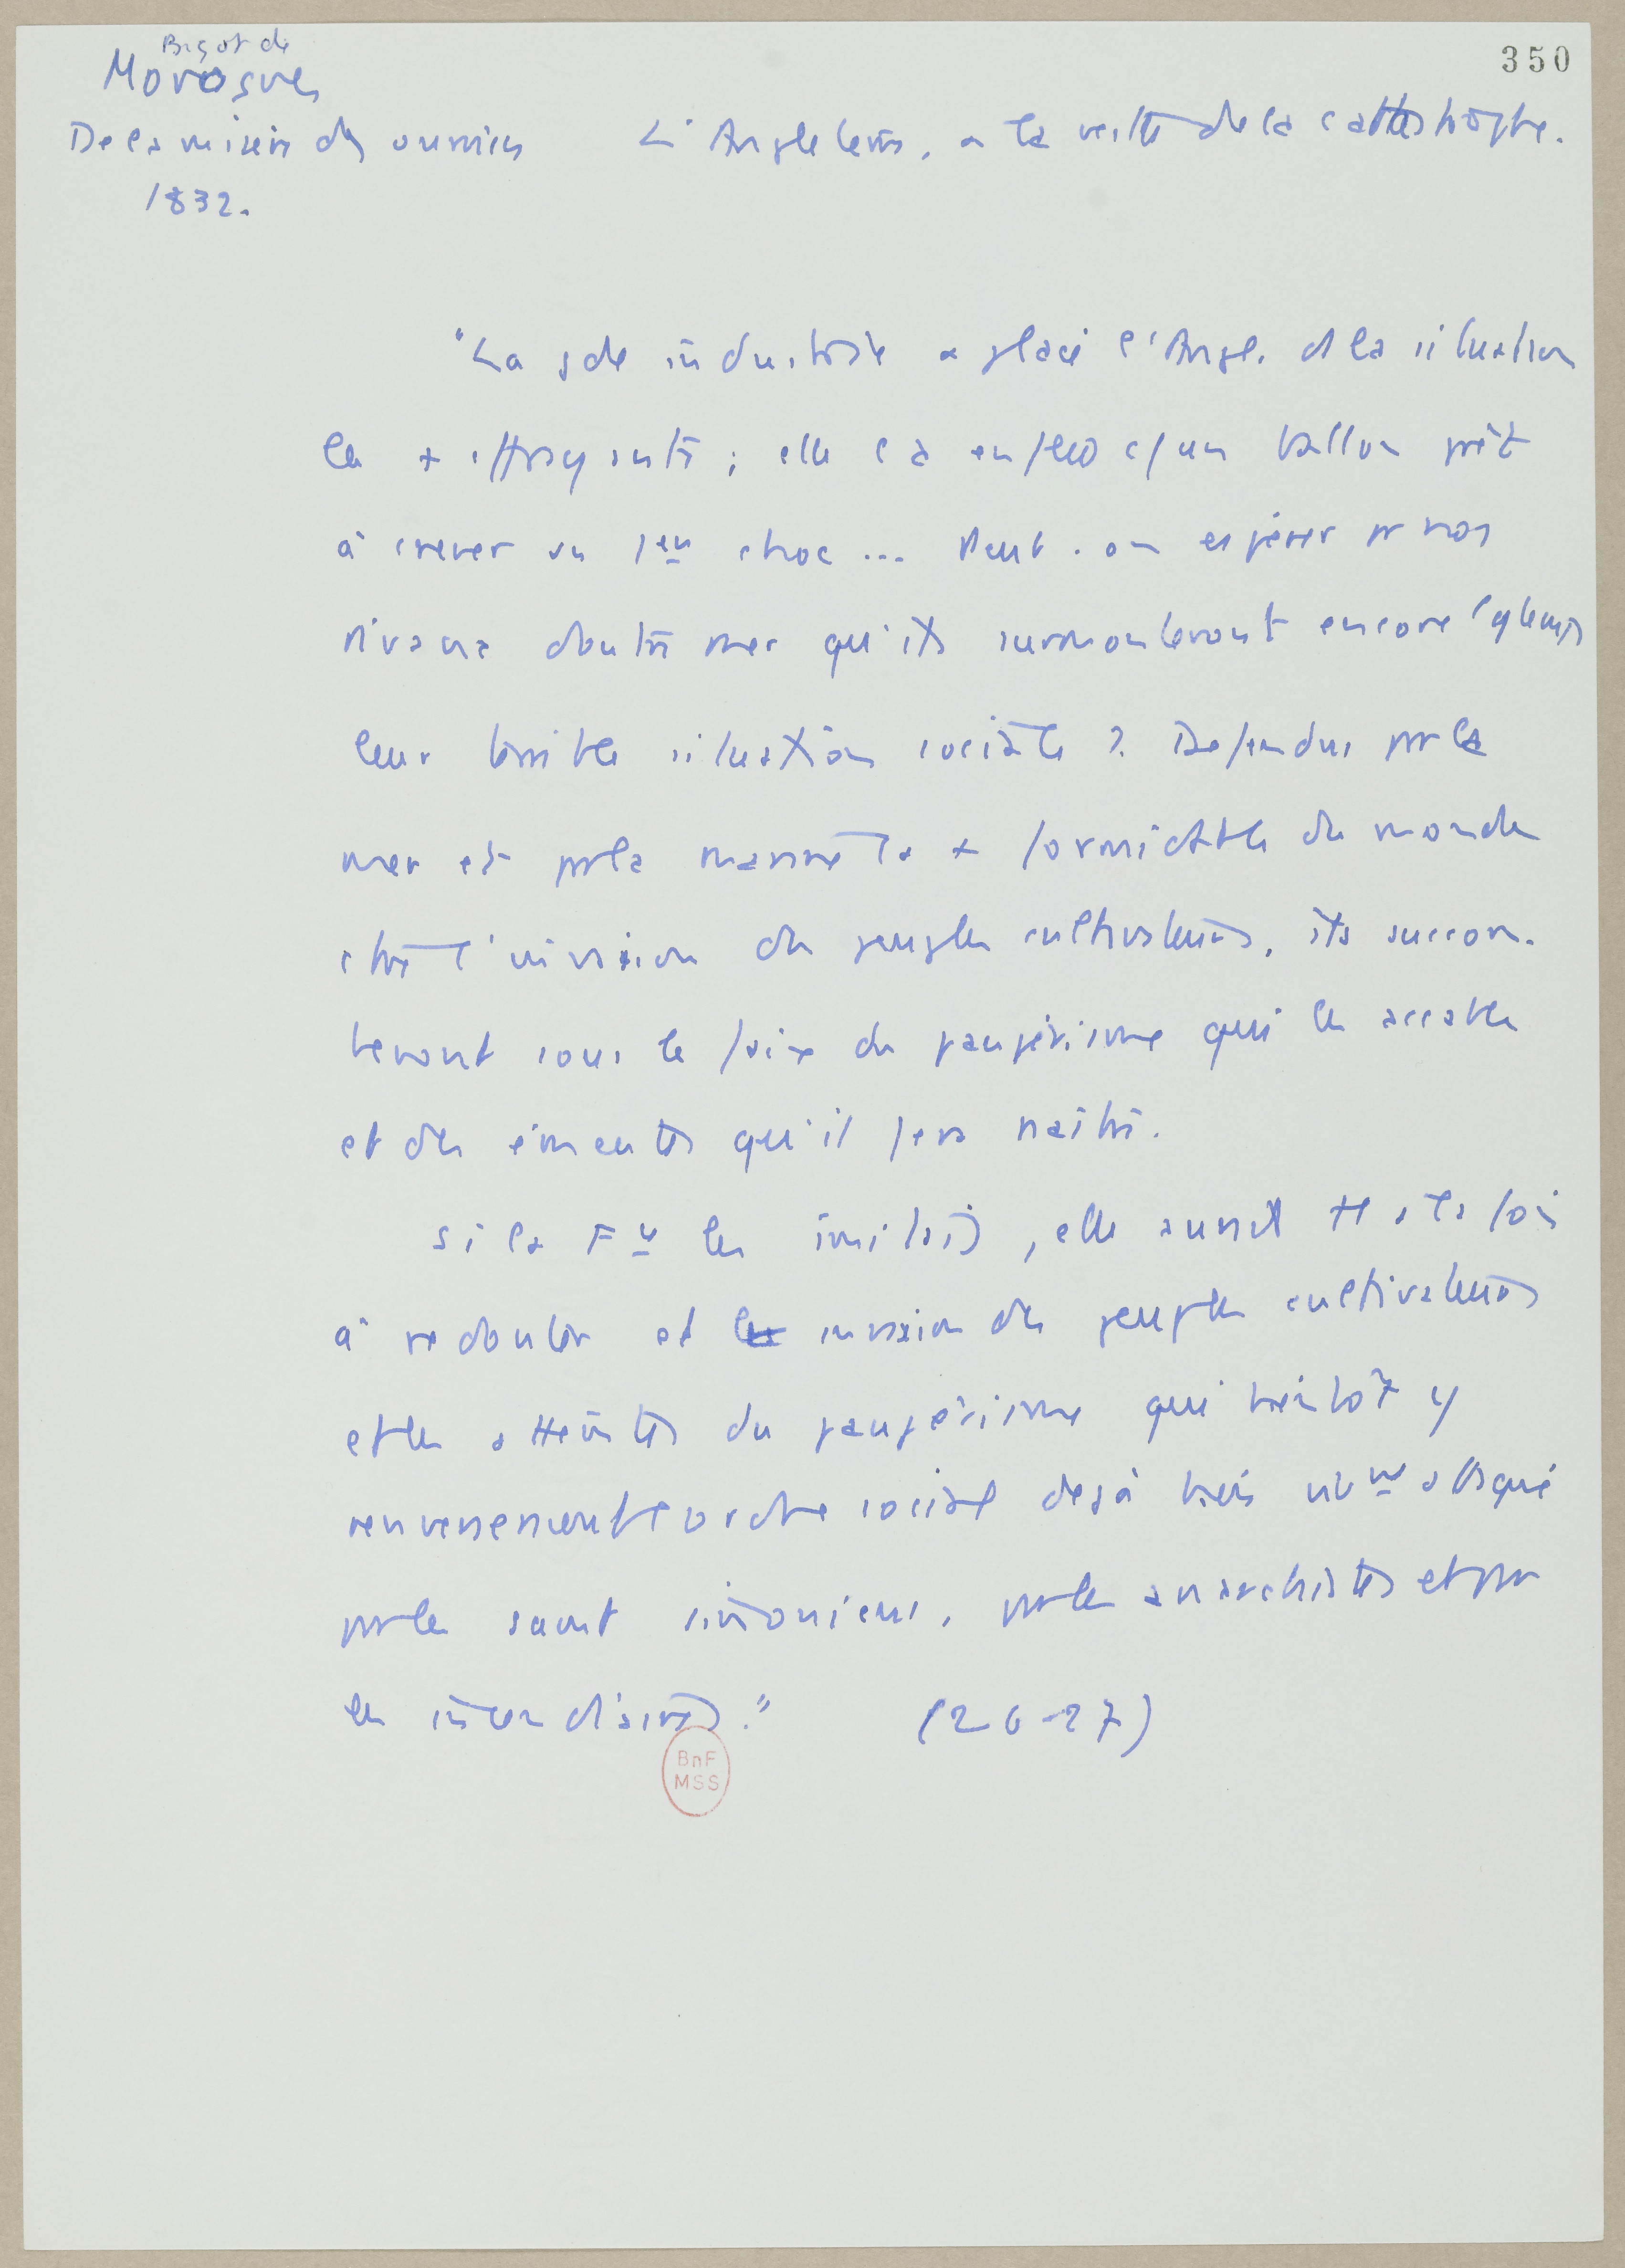 350
Bigot de
Morogues
De la misère des ouvriers
1832.
L'Angleterre, à la veille de la catastrophe.
"La gde industrie a placé l'Angl. ds la situation
la + effrayante ; elle est en effet c/ un ballon prêt
à crever au 1er choc ... Peut-on espérer pr nos
rivaux d'outre mer qu'ils surmonteront encore lgtemps
leur terrible situation sociale ? Défendus par la
mer et par la marine la + formidable du monde
ctre l'invasion des peuples cultivateurs, ils succom-
beront sous le faix du paupérisme qui les accable
et des émeutes qu'il fera naître.
Si la Fce les imitait, elle aurait tt à la fois
à redouter et invasion des peuples cultivateurs
et les atteintes du paupérisme qui bientôt y
renverseraient l'ordre social déjà très vivmt attaqué
par les saint simoniens, par les anarchistes et par
les incendiaires." (26-27)
BnF
MSS